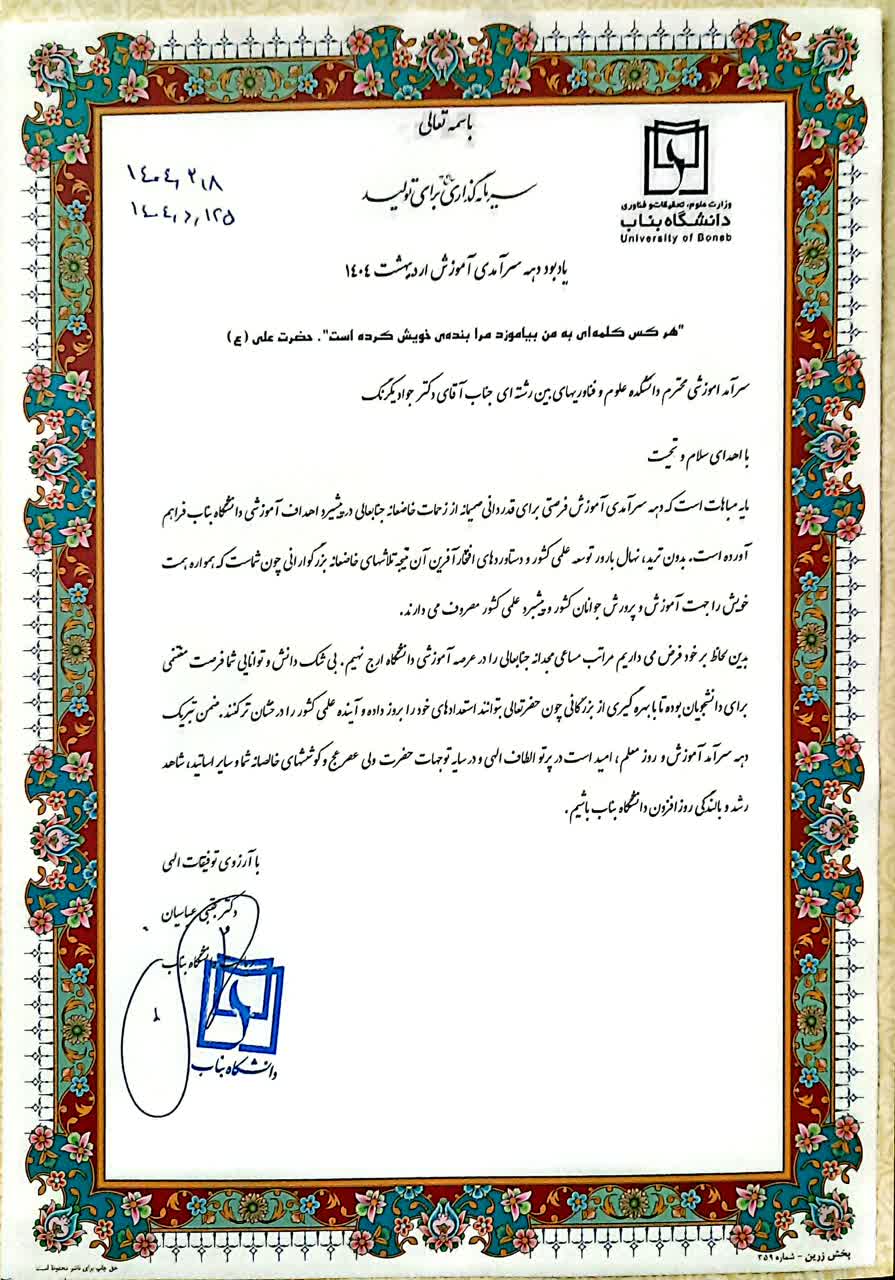 باسمه تعالی
وزارت علوم، تحقیقات و فناوری
دانشگاه بناب
University of Bonab
۱۴۰۴,۲,۸
سرمایه گذاری برای تولید
یادبود دهه سرآمدی آموزش اردیبهشت ۱۴۰۴
"هر کس کلمه‌ای به من بیاموزد مرا بنده‌ی خویش کرده است". حضرت علی (ع)
سرآمد اموزشی محترم دانشکده علوم و فناوریهای بین رشته ای جناب آقای دکتر جواد یکرنگ
با اهدای سلام و تحیت
مایه مباهات است که دهه سرآمدی آموزش فرصتی برای قدردانی صمیمانه از زحمات خاضعانه جنابعالی در پیشبرد اهداف آموزشی دانشگاه بناب فراهم
آورده است. بدون تردید، نهال بارور توسعه علمی کشور و دستاوردهای افتخارآفرین آن نتیجه تلاشهای خاضعانه بزرگوارانی چون شماست که همواره همت
خویش را جهت آموزش و پرورش جوانان کشور و پیشبرد علمی کشور مصروف می دارند.
بدین لحاظ بر خود فرض می داریم مراتب مساعی مجدانه جنابعالی را در عرصه آموزشی دانشگاه ارج نهیم. بی شک دانش و توانایی شما فرصت مغتنمی
برای دانشجویان بوده تا با بهره گیری از بزرگانی چون حضرتعالی بتوانند استعدادهای خود را بروز داده و آینده علمی کشور را درخشان تر کنند. ضمن تبریک
دهه سرآمد آموزش و روز معلم، امید است در پرتو الطاف الهی و در سایه توجهات حضرت ولی عصر عج و کوششهای خالصانه شما و سایر اساتید، شاهد
رشد و بالندگی روزافزون دانشگاه بناب باشیم.
با آرزوی توفیقات الهی
دکتر مجتبی عباسیان
دانشگاه بناب
دانشگاه بناب
پخش زرین - شماره ۳۵۹
حق چاپ برای ناشر محفوظ است